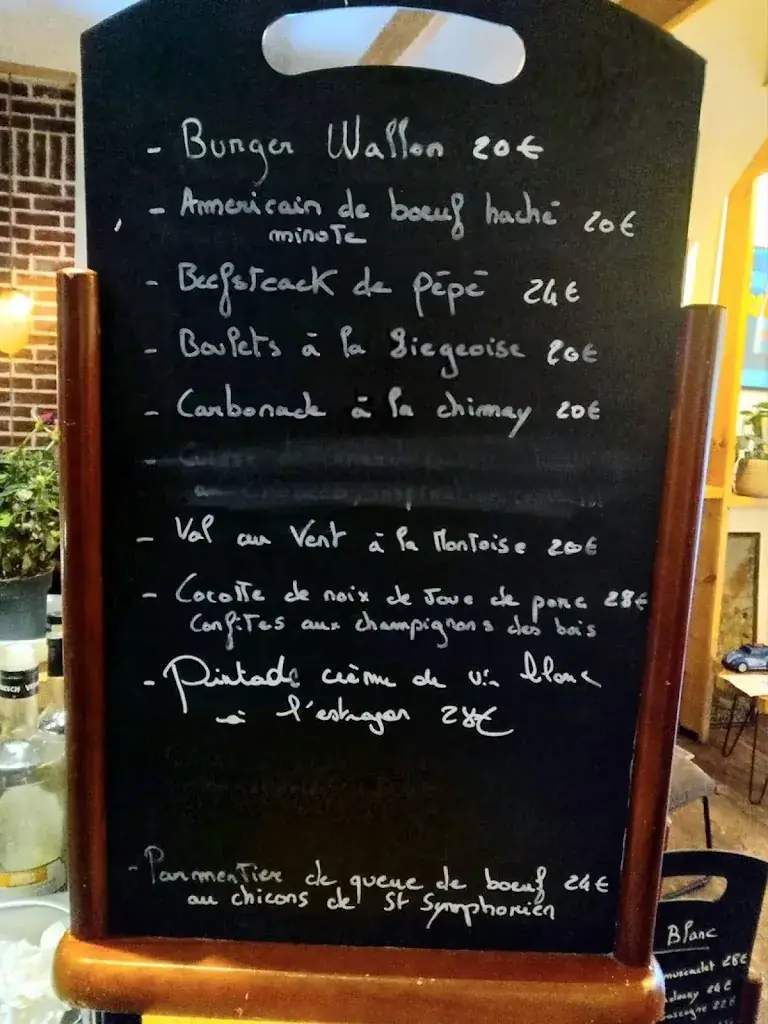 - Burger Wallon 20€
- Americain de boeuf haché 20€
minute
- Beefsteack de pépé 24€
- Boulets à la Liegeoise 20€
- Carbonade à la chimay 20€
- Val au Vent à la Montoise 20€
- Cocotte de noix de Joue de porc 28€
Confites aux champignons des bois
- Pintade crème de vin blanc
à l'estragon 28€
- Parmentier de queue de boeuf 24€
au chicons de St Symphorien
Blanc
muscadet 28€